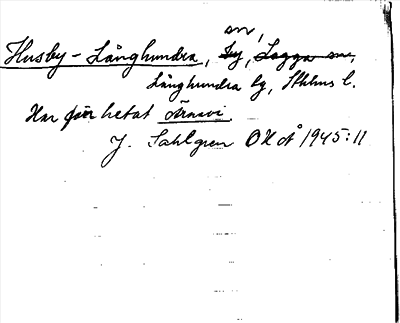 sn,
Husby-Långhundra, by, Lagga sn,
Långhundra hg, Sthlms l.
Har förr hetat Örnavi.
J. Sahlgren OXÅ 1945:11